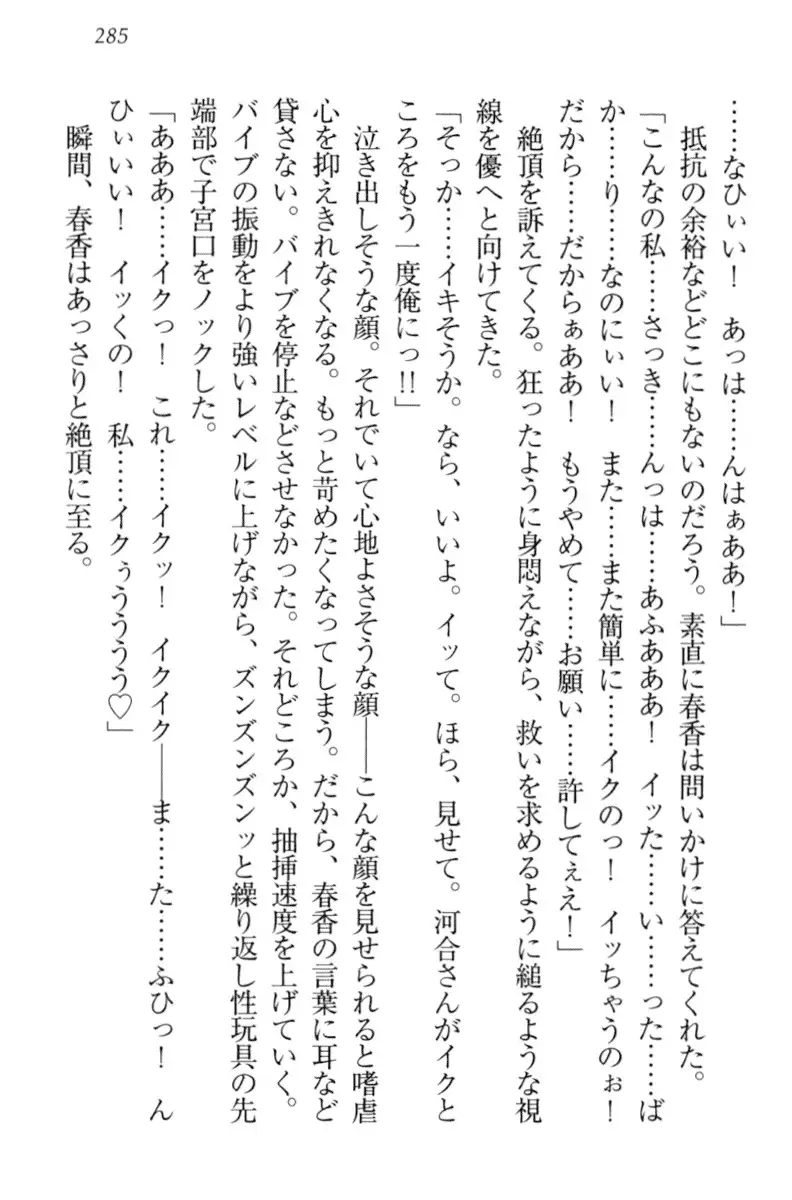 285
……なひぃい！　あっは……んはぁああ！」
抵抗の余裕などどこにもないのだろう。素直に春香は問いかけに答えてくれた。
「こんなの私……さっき……んっは……あふあああ！　イッた……い……った……ば
か……り……なのにぃい！　また……また簡単に……イクのっ！　イッちゃうのぉ！
だから……だからぁああ！　もうやめて……お願い……許してぇえ！」
絶頂を訴えてくる。狂ったように身悶えながら、救いを求めるように縋るような視
線を優へと向けてきた。
「そっか……イキそうか。なら、いいよ。イッて。ほら、見せて。河合さんがイクと
ころをもう一度俺にっ!!」
泣き出しそうな顔。それでいて心地よさそうな顔――こんな顔を見せられると嗜虐
心を抑えきれなくなる。もっと苛めたくなってしまう。だから、春香の言葉に耳など
貸さない。バイブを停止などさせなかった。それどころか、抽挿速度を上げていく。
バイブの振動をより強いレベルに上げながら、ズンズンズンッと繰り返し性玩具の先
端部で子宮口をノックした。
「あああ……イクっ！　これ……イクッ！　イクイク――ま……た……ふひっ！　ん
ひぃいい！　イッくの！　私……イクぅうううう♡」
瞬間、春香はあっさりと絶頂に至る。